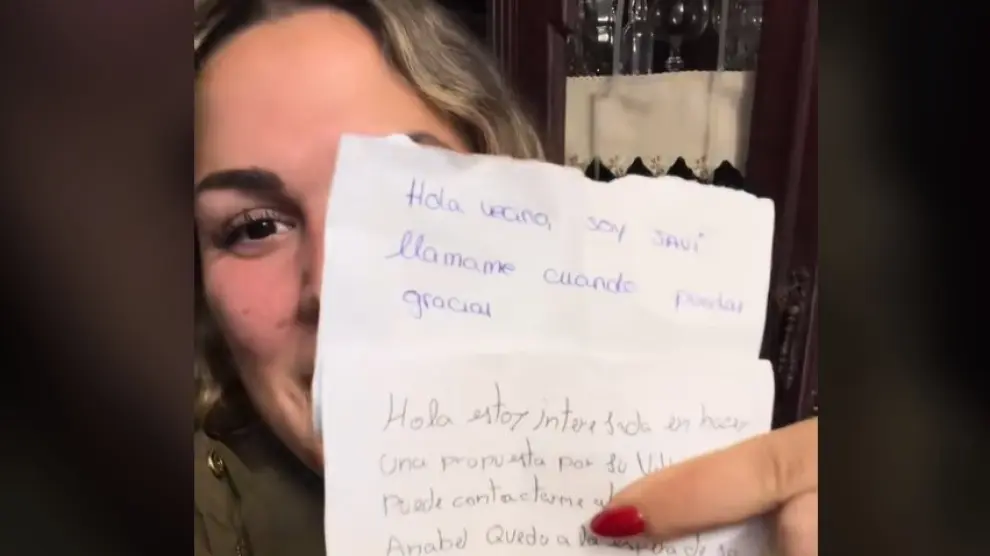 Hola vecino, soy Javi
llamame cuando puedas
gracias
Hola estoy interesada en hacer
una propuesta por su
puede contactarme al
Anabel Quedo a la espera de su